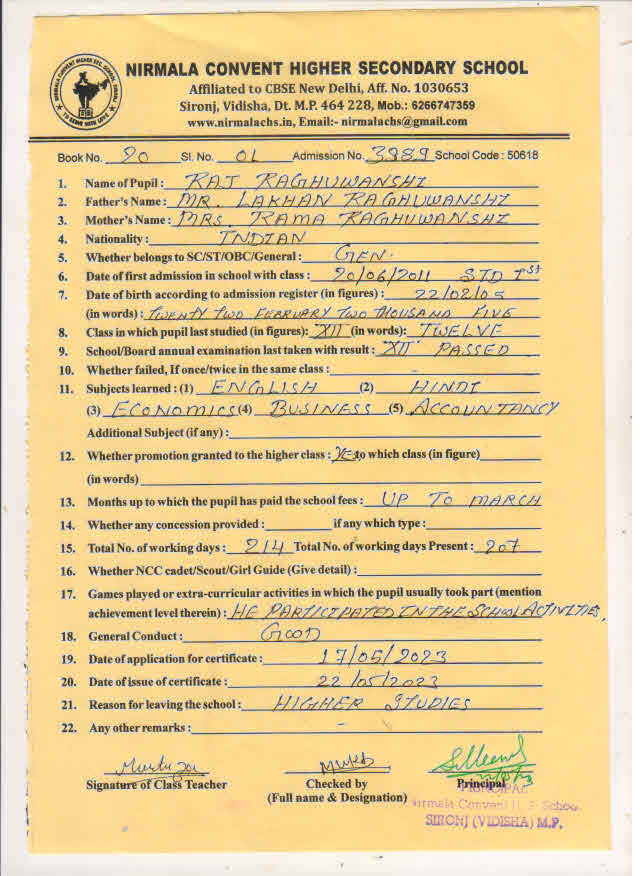 NIRMALA CONVENT HIGHER SEC. SCHOOL SIRONJ
TO SERVE WITH LOVE
NIRMALA CONVENT HIGHER SECONDARY SCHOOL
Affiliated to CBSE New Delhi, Aff. No. 1030653
Sironj, Vidisha, Dt. M.P. 464 228, Mob.: 6266747359
www.nirmalachs.in, Email:- nirmalachs@gmail.com
Book No. 20 Sl. No. 01 Admission No. 3989 School Code : 50618
1. Name of Pupil : RAJ RAGHUWANSHI
2. Father's Name : MR. LAKHAN RAGHUWANSHI
3. Mother's Name : MRS. RAMA RAGHUWANSHI
4. Nationality : INDIAN
5. Whether belongs to SC/ST/OBC/General : GEN.
6. Date of first admission in school with class : 20/06/2011 STD Ist
7. Date of birth according to admission register (in figures) : 22/02/05
(in words) : TWENTY TWO FEBRUARY TWO THOUSAND FIVE
8. Class in which pupil last studied (in figures): XII (in words): TWELVE
9. School/Board annual examination last taken with result : XII PASSED
10. Whether failed, If once/twice in the same class : -
11. Subjects learned : (1) ENGLISH (2) HINDI
(3) ECONOMICS (4) BUSINESS (5) ACCOUNTANCY
Additional Subject (if any) :
12. Whether promotion granted to the higher class : YES to which class (in figure)
(in words)
13. Months up to which the pupil has paid the school fees : UP TO MARCH
14. Whether any concession provided : if any which type :
15. Total No. of working days : 214 Total No. of working days Present : 207
16. Whether NCC cadet/Scout/Girl Guide (Give detail) :
17. Games played or extra-curricular activities in which the pupil usually took part (mention
achievement level therein) : HE PARTICIPATED IN THE SCHOOL ACTIVITIES.
18. General Conduct : GOOD
19. Date of application for certificate : 17/05/2023
20. Date of issue of certificate : 22/05/2023
21. Reason for leaving the school : HIGHER STUDIES
22. Any other remarks : -
Signature of Class Teacher Checked by Principal
(Full name & Designation)
PRINCIPAL
Nirmala Convent H. S. School
SIRONJ (VIDISHA) M.P.